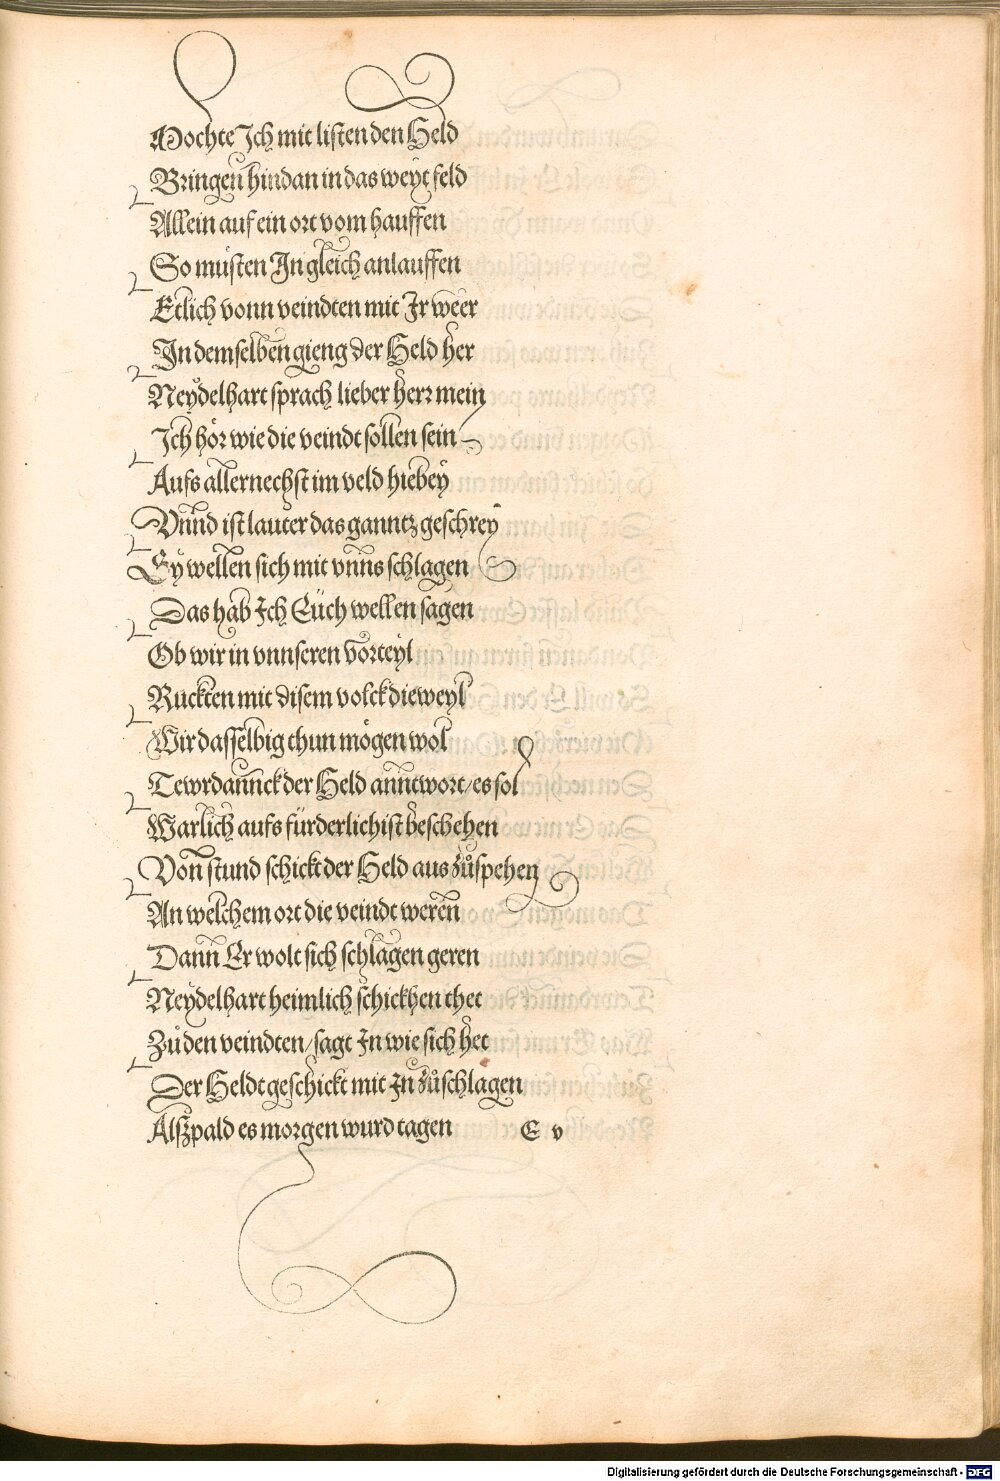 Mochte Ich mit listen den Held
Bringen hindan in das weyt feld
Allein auf ein ort vom hauffen
So müsten In gleich anlauffen
Etlich vonn veindten mit Ir weer
In demselben gieng der Held her
Neydelhart sprach lieber herr mein
Ich hör wie die veindt sollen sein
Aufs allernechst im veld hiebey
Vnnd ist lauter das ganntz geschrey
Sy wellen sich mit vnns schlagen
Das hab Ich Eüch wellen sagen
Ob wir in vnnseren vorteyl
Ruckten mit disem volck dieweyl
Wir dasselbig thun mögen wol
Tewrdannck der Held anntwort / es sol
Warlich aufs fürderlichist beschehen
Von stund schickt der Held aus zůspehen
An welchem ort die veindt weren
Dann Er wolt sich schlagen geren
Neydelhart heimlich schickhen thet
Zů den veindten / sagt In wie sich het
Der Heldt geschickt mit In zůschlagen
Alßpald es morgen wurd tagen
E v
Digitalisierung gefördert durch die Deutsche Forschungsgemeinschaft - DFG